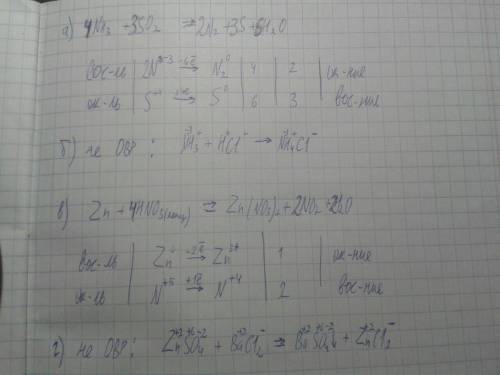 а) 4NH₃ + 3SO₂ = 2N₂ + 3S + 6H₂O
вос-ль | 2N⁻³ −6e̅→ N₂⁰ | 4 | 2 | ок-ние
ок-ль | S⁺⁴ +4e̅→ S⁰ | 6 | 3 | вос-ние
б) не ОВР: N⁻³H₃⁺ + H⁺Cl⁻ → N⁻³H₄⁺Cl⁻
в) Zn + 4HNO₃(конц) = Zn(NO₃)₂ + 2NO₂ + 2H₂O
вос-ль | Zn⁰ −2e̅→ Zn²⁺ | 1 | ок-ние
ок-ль | N⁺⁵ +1e̅→ N⁺⁴ | 2 | вос-ние
г) не ОВР: Zn⁺²S⁺⁶O₄⁻² + Ba⁺²Cl₂⁻ = Ba⁺²S⁺⁶O₄⁻² + Zn⁺²Cl₂⁻